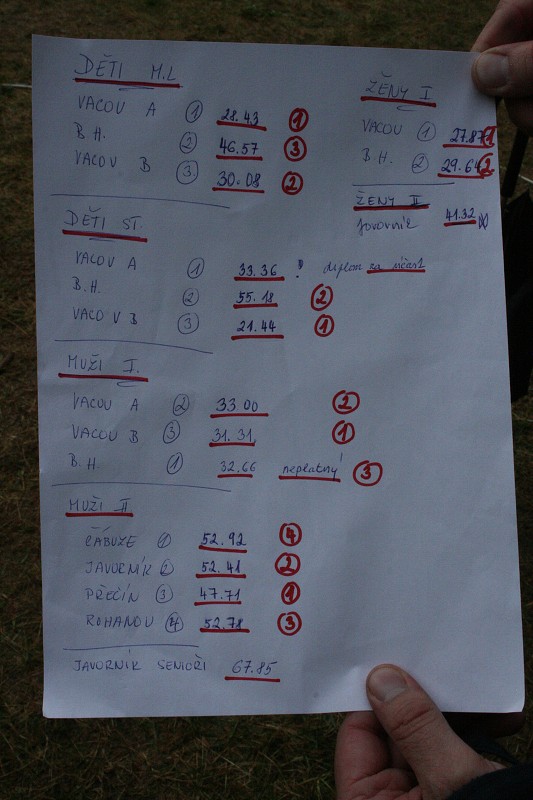 DĚTI ML
VACOV A ① 28.43 ①
B.H. ② 46.57 ③
VACOV B ③ 30.08 ②
DĚTI ST.
VACOV A ① 33.36 ! diplom za účast
B.H. ② 55.18 ②
VACOV B ③ 21.44 ①
MUŽI I.
VACOV A ② 33.00 ②
VACOV B ③ 31.31 ①
B.H. ① 32.66 neplatný! ③
MUŽI II
ČÁBUZE ① 52.92 ④
JAVORNÍK ② 52.48 ②
PŘEČÍN ③ 47.71 ①
BOHANOV ④ 52.78 ③
JAVORNÍK SENIOŘI 67.85
ŽENY I
VACOV ① 27.87 ①
B.H. ② 29.64 ②
ŽENY II
Javorník 41.32